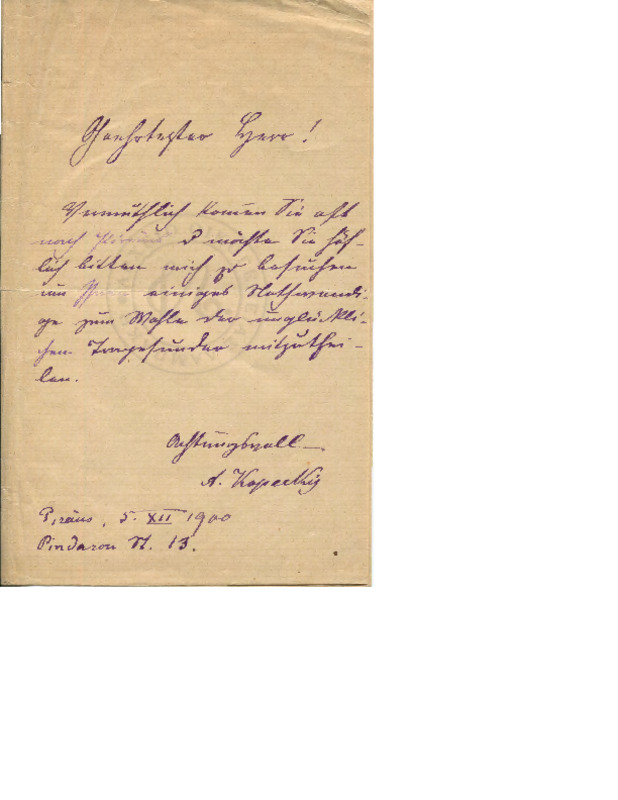 Geehrtester Herr!
Vermuthlich komen Sie oft
nach Piräus I möchte Sie höf-
lich bitten mich zu besuchen
um Ihnen einiges Nothwendi-
ge zum Wohle der unglückli-
chen mitzuthei-
len.
Achtungsvoll
A. Kopecky
Piräus, 5. XII 1900
Pindarou St. 13.